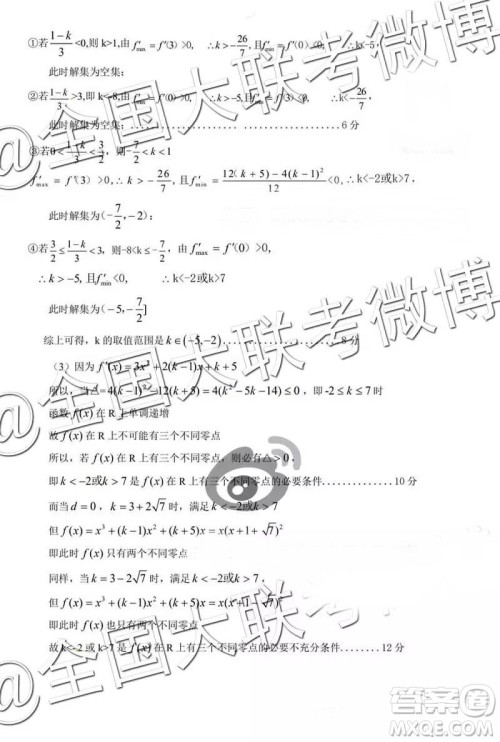 ①若(1-k)/3<0,则 k>1,由 f′min=f′(3)>0, ∴k>-26/7,且f′min=f′(0)<0, ∴k<-5,
此时解集为空集；
②若(1-k)/3>3,即 k<-8,由 f′max=f′(0)>0, ∴k>-5,且f′min=f′(3)<0, ∴k<-26/7,
此时解集为空集；..................6分
③若0<(1-k)/3<3/2, 则-7/2<k<1
f′max=f′(3)>0,∴k>-26/7, 且f′min=(12(k+5)-4(k-1)²)/12<0,∴k<-2或k>7,
此时解集为(-7/2,-2)；
④若3/2≤(1-k)/3≤3, 则-8<k≤-7/2, 由 f′max=f′(0)>0,
∴k>-5,且f′min<0, ∴k<-2或k>7
此时解集为(-5,-7/2]
综上可得，k 的取值范围是k∈(-5,-2)..................8分
（3）因为f′(x)=3x²+2(k-1)x+k+5
所以，当△=4(k-1)²-12(k+5)=4(k²-5k-14)≤0，即-2≤k≤7时
函数 f(x) 在 R 上单调递增
故 f(x) 在 R 上不可能有三个不同零点
所以，若 f(x) 在 R 上有三个不同零点，则必有△>0，
即 k<-2或k>7 是 f(x) 在 R 上有三个不同零点的必要条件........10分
而当 d=0，k=3+2√7 时，满足 k<-2或k>7
但 f(x)=x³+(k-1)x²+(k+5)x=x(x+1+√7)²
即此时 f(x) 只有两个不同零点
同样，当 k=3-2√7 时，满足 k<-2或k>7，
但 f(x)=x³+(k-1)x²+(k+5)x=x(x+1-√7)²
即此时 f(x) 也只有两个不同零点
故 k<-2 或 k>7 是 f(x) 在 R 上有三个不同零点的必要不充分条件........12分
@全国大联考微博
@全国大联考微博
@全国大联考微博
答案圈
MXQE.COM